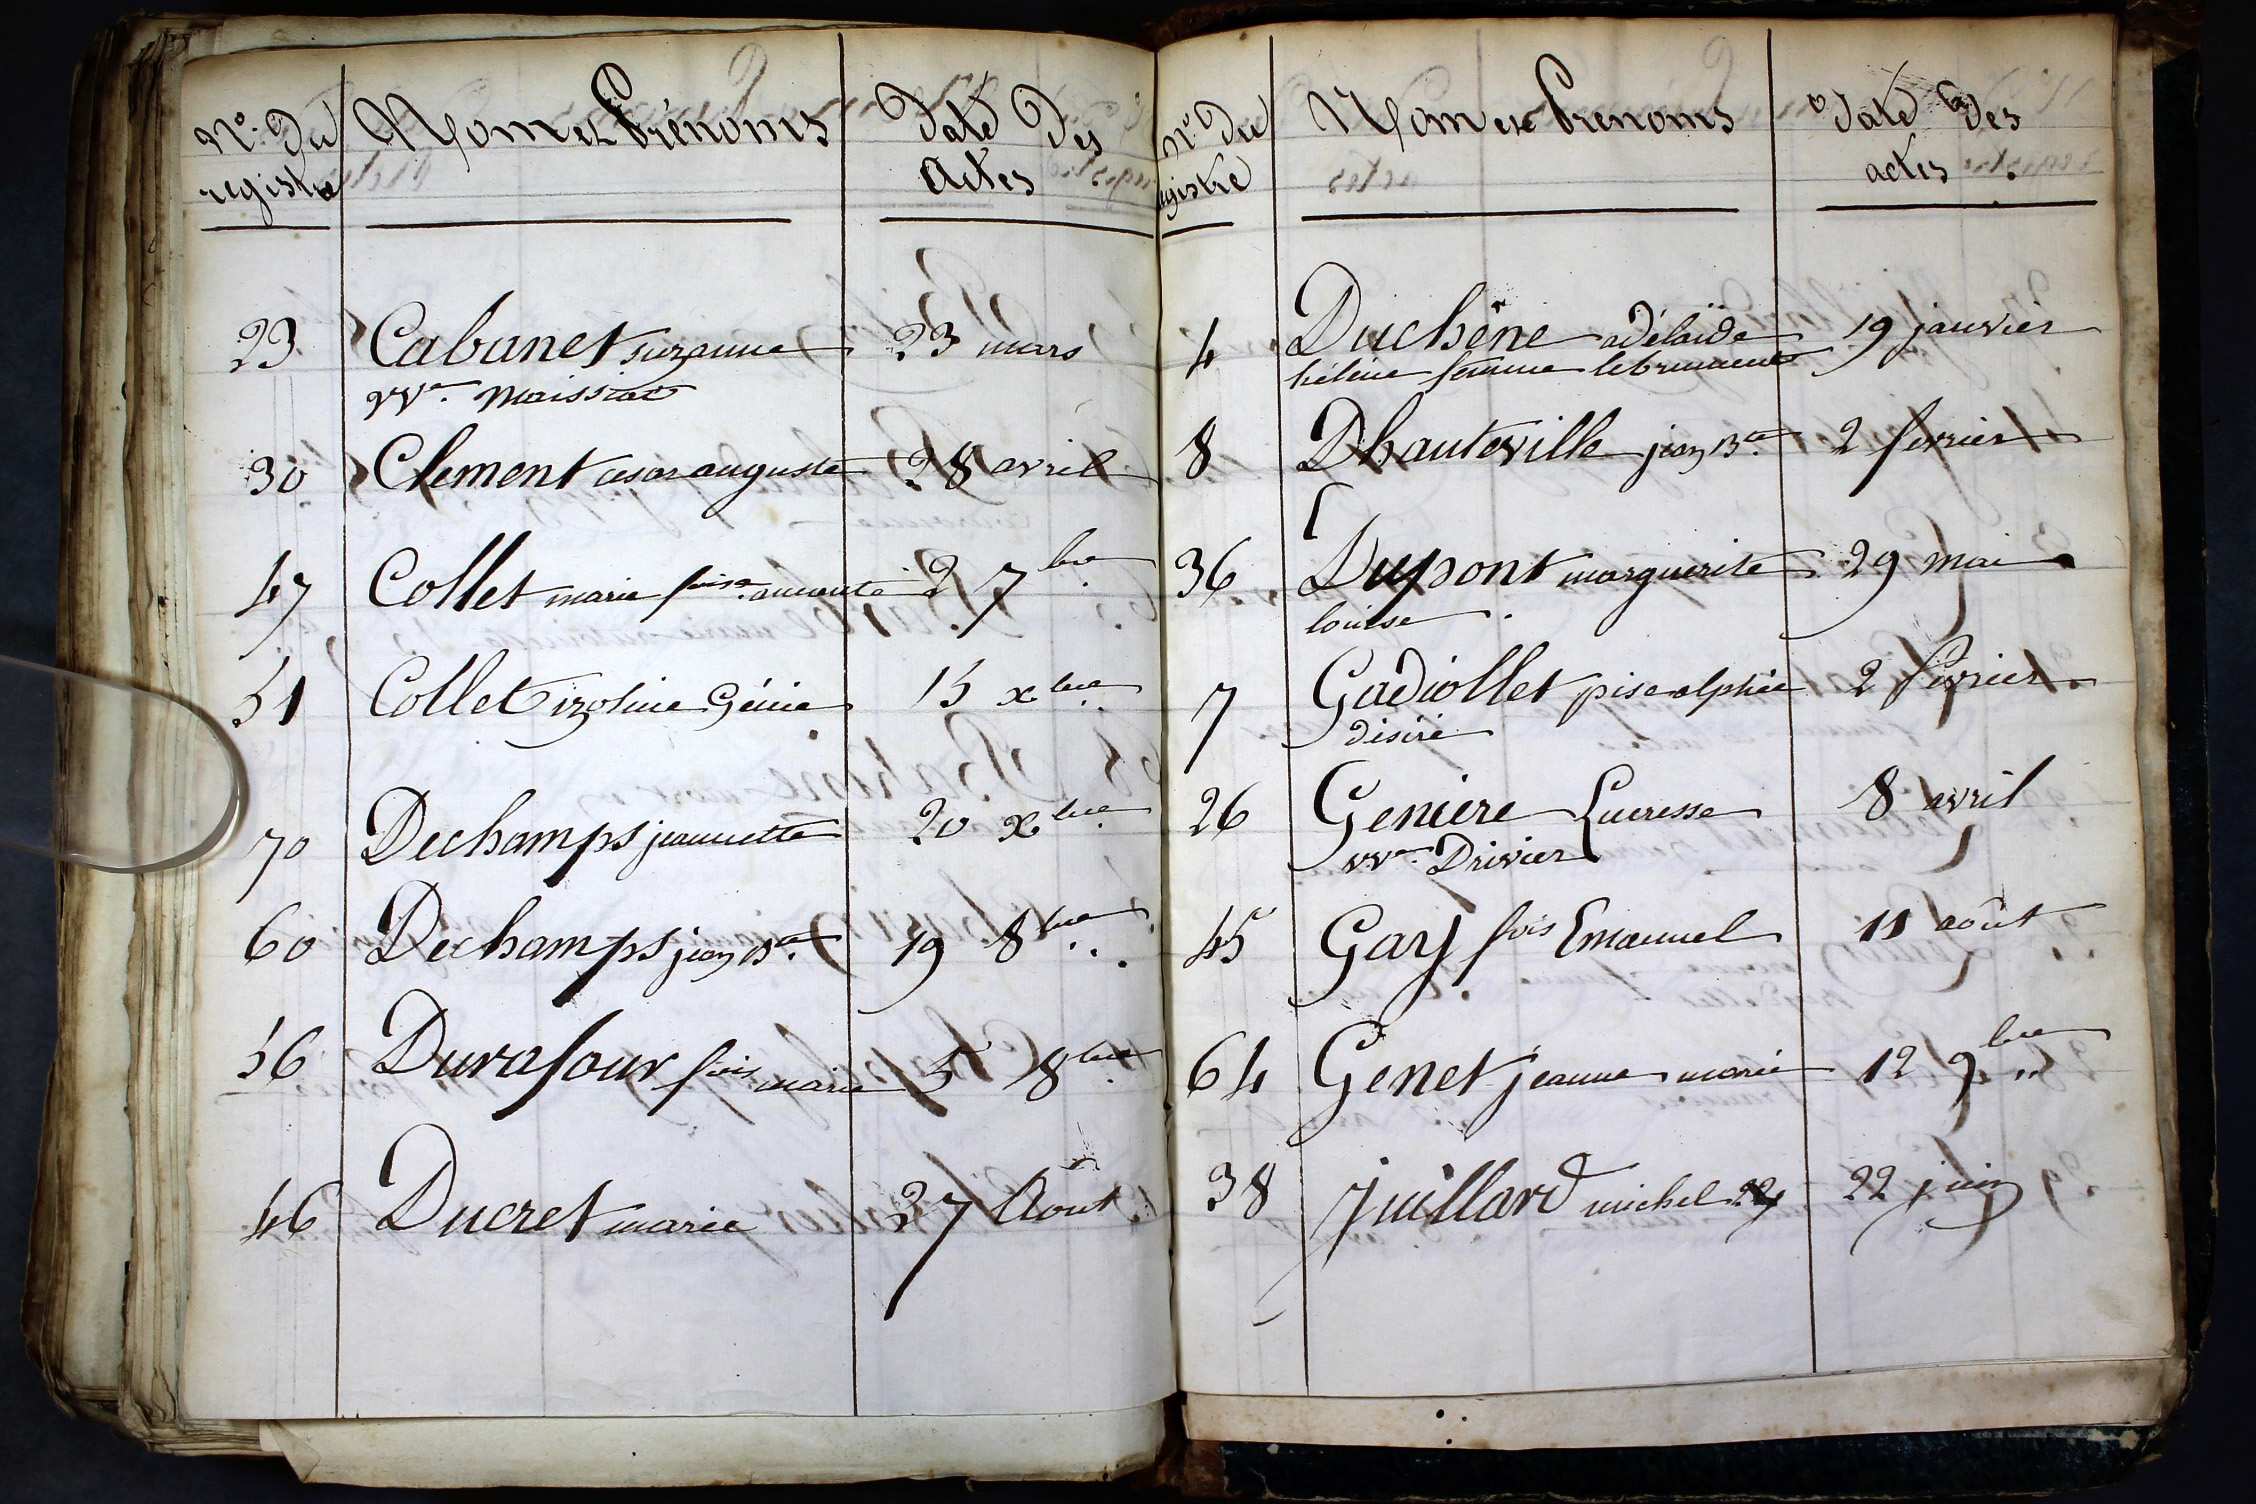 N.° du Nom et Prénoms date des
registre actes
23 Cabanet suzanne 23 mars
vve. Maissiat
30 Clement cesar auguste 28 avril
47 Collet marie foise 2 7bre
51 Collet izoline Génie 15 xbre
70 Dechamps jeannette 20 xbre
60 Dechamps jean Bte. 19 8bre
56 Durafour fois marie 5 8bre
46 Ducret marie 27 Août
N.° du Nom et Prenoms date des
registre actes
4 Duchêne adélaïde 19 janvier
hélène femme
8 Dhauteville jean Bte. 2 fevrier
36 Dupont marguerite 29 mai
louise
7 Gadiollet alphée 2 fevrier
désiré
26 Geniere Lucresse 8 avril
vve. Drivier
45 Gay fois Emanuel 11 août
64 Genet jeanne marie 12 9bre
38 juillard michel 22 juin